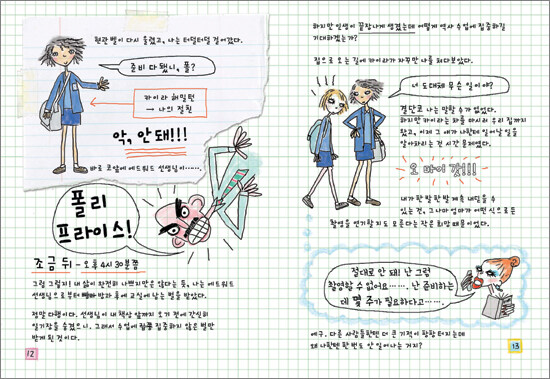 현관 벨이 다시 울렸고, 나는 터덜터덜 걸어갔다.
준비 다 됐니, 폴?
카이라 해밀턴
→ 나의 절친
악, 안 돼!!!
바로 코앞에 에드워드 선생님이……,
폴리
프라이스!
조금 뒤 - 오후 4시 30분쯤
그럼 그렇지! 내 삶이 완전히 나쁘지만은 않다는 듯, 나는 에드워드
선생님으로부터 빠빠 방과 후에 교실에 남는 벌을 받았다.
정말 다행이다. 선생님이 내 책상 앞까지 오기 전에 간신히
일기장을 숨겼으니. 그래서 수업에 집중하지 않은 벌만
받게 된 것이다.
12
하지만 인생이 끝장나게 생겼는데 어떻게 역사 수업에 집중하길
기대하겠는가?
집으로 오는 길에 카이라가 자꾸만 나를 쳐다보았다.
너 도대체 무슨 일이야?
결단코 나는 말할 수가 없었다.
하지만 카이라는 차를 마시러 우리 집까지
왔고, 이제 그 애가 나한테 일어날 일을
알아차리는 건 시간 문제였다.
오 마이 갓!!!
내가 한 발 한 발 계속 내딛을 수
있는 건, 그나마 엄마가 어떤 식으로든
촬영을 연기할지도 모른다는 작은 희망 때문이었다.
절대로 안 돼! 난 그럼
촬영할 수 없어요……. 난 준비하는
데 몇 주가 필요하다고…….
에구. 다른 사람들한텐 더 큰 기적이 팡팡 터지는데
왜 나한텐 한 번도 안 일어나는 거지?
13